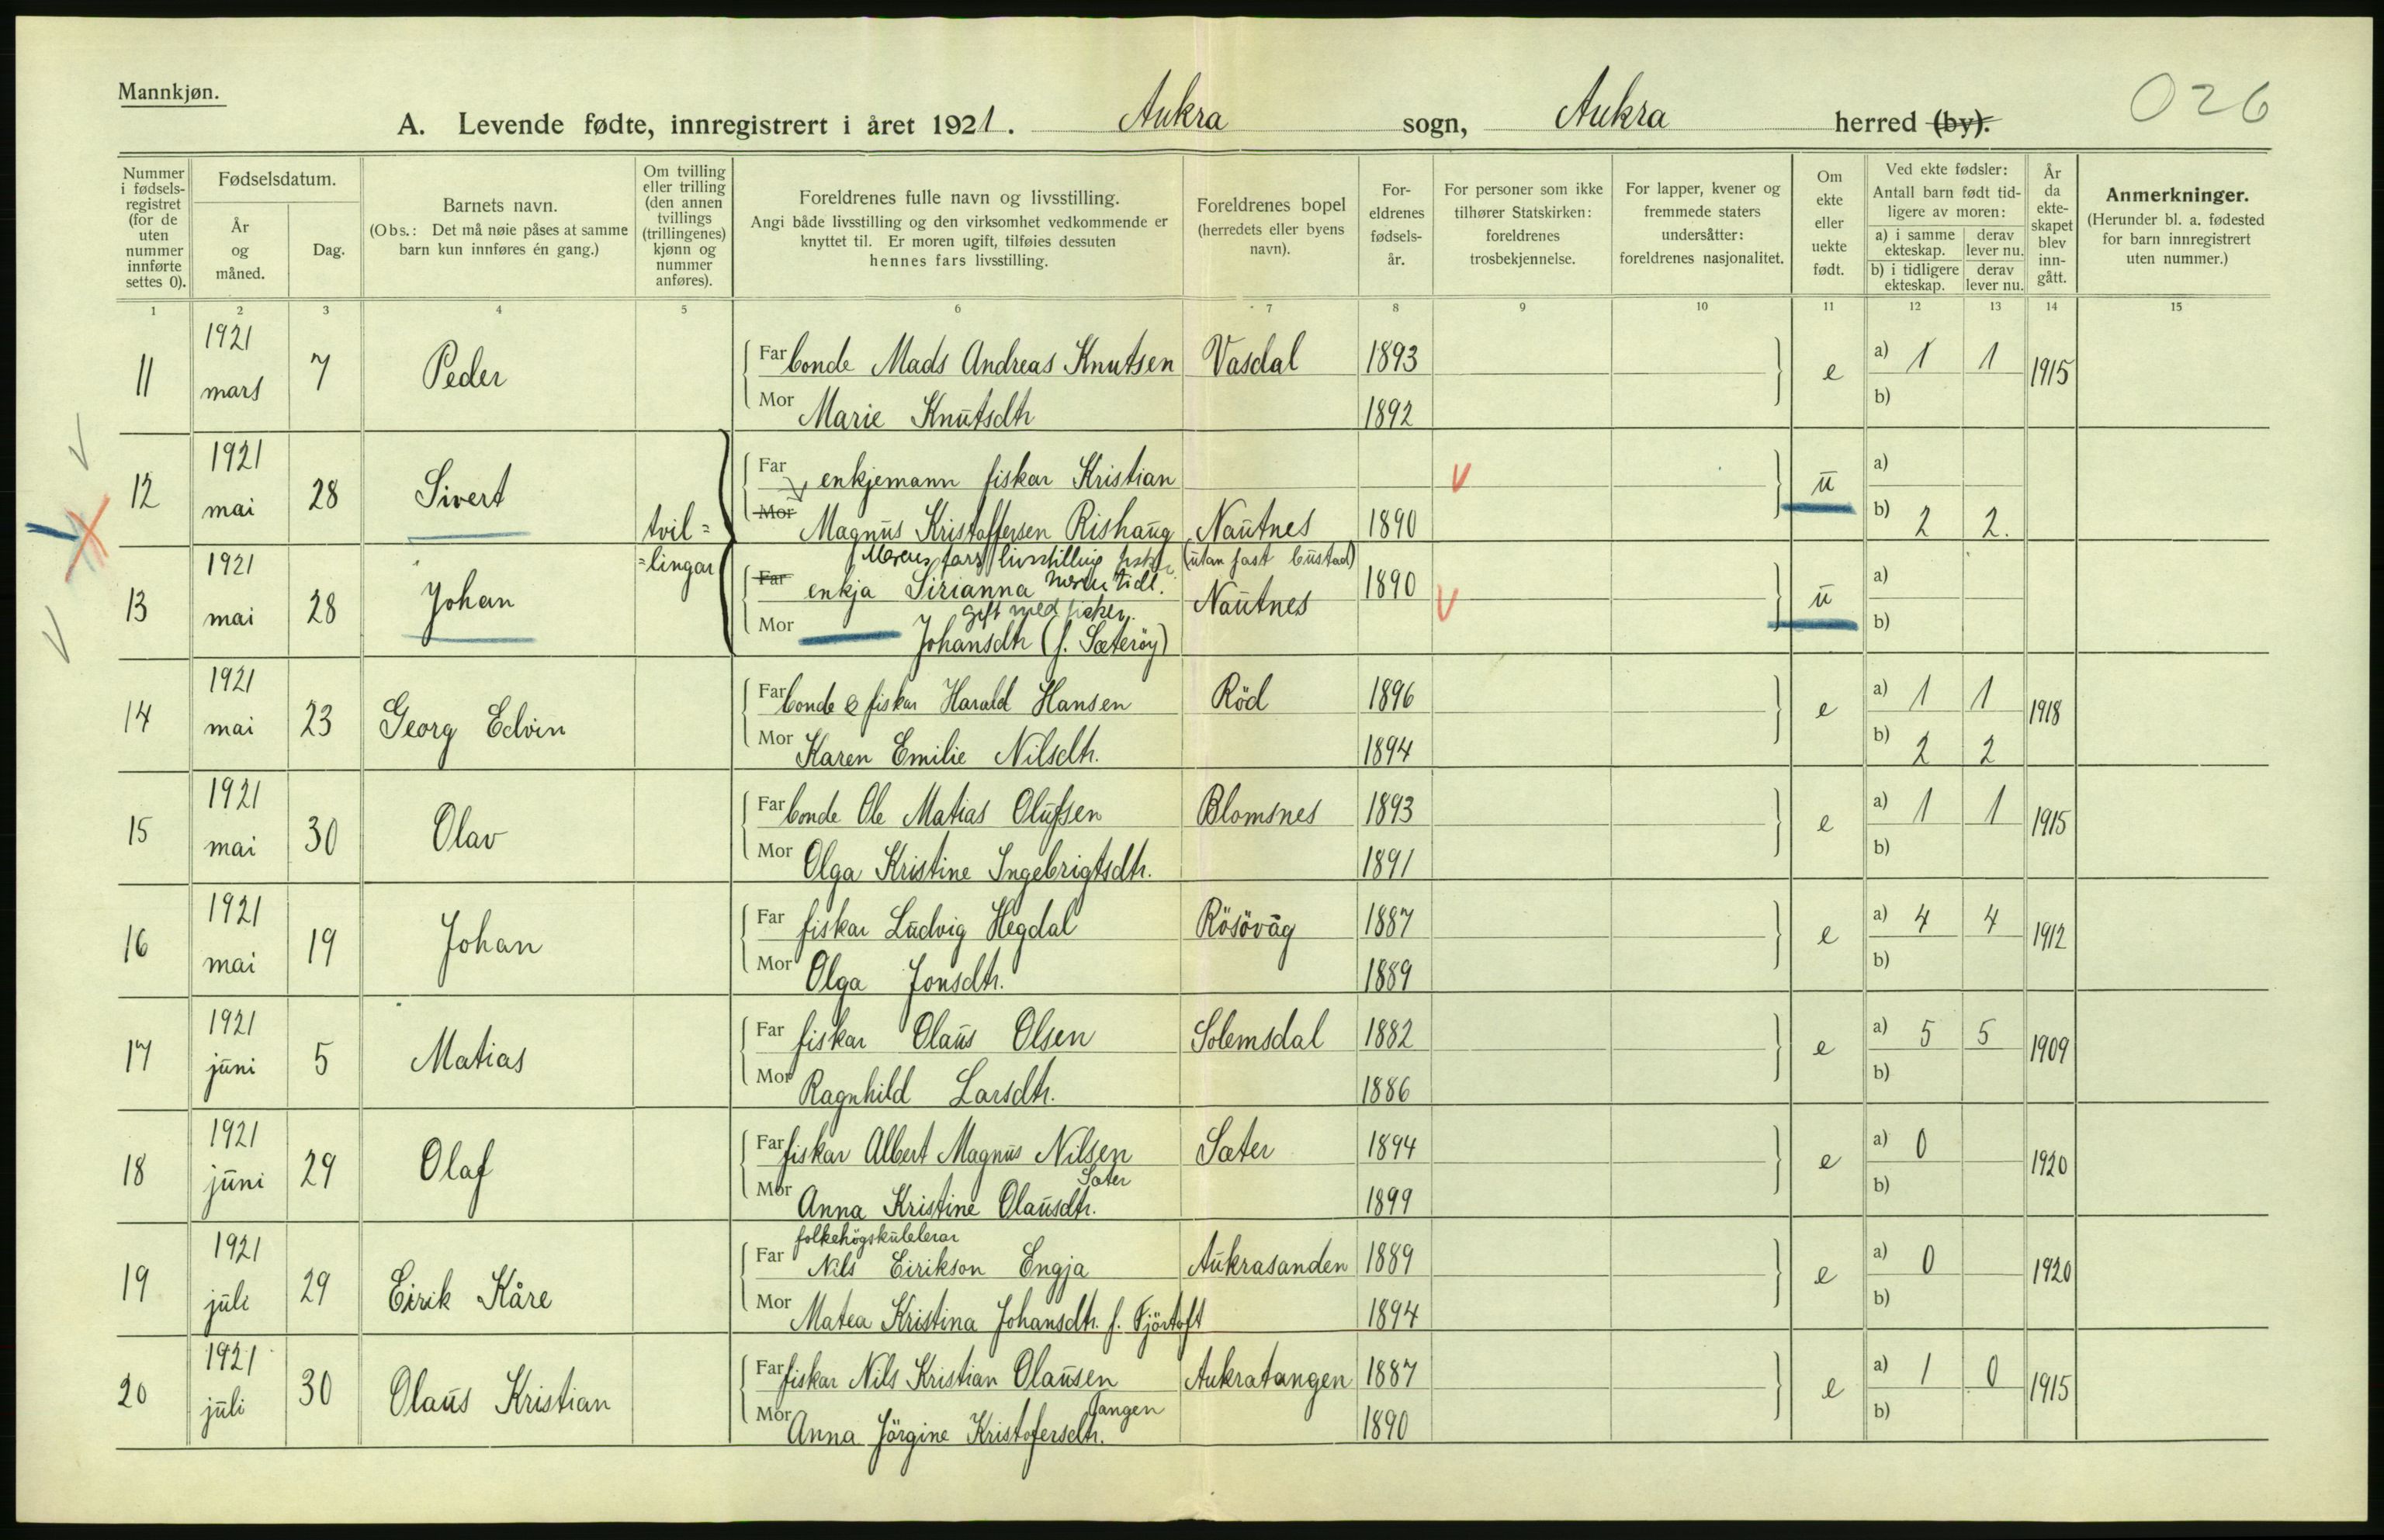 Mannkjøn.
026
A. Levende fødte, innregistrert i året 1921. Aukra sogn, Aukra herred (by).
Nummer i fødselsregistret (for de uten nummer innførte settes 0).
Fødselsdatum.
År og måned.
Dag.
Barnets navn.
(Obs.: Det må nøie påses at samme barn kun innføres én gang.)
Om tvilling eller trilling (den annen tvillings (trillingenes) kjønn og nummer anføres).
Foreldrenes fulle navn og livsstilling.
Angi både livsstilling og den virksomhet vedkommende er knyttet til. Er moren ugift, tilføies dessuten hennes fars livsstilling.
Foreldrenes bopel (herredets eller byens navn).
Foreldrenes fødselsår.
For personer som ikke tilhører Statskirken: foreldrenes trosbekjennelse.
For lapper, kvener og fremmede staters undersåtter: foreldrenes nasjonalitet.
Om ekte eller uekte født.
Ved ekte fødsler:
Antall barn født tidligere av moren:
a) i samme ekteskap.
derav lever nu.
b) i tidligere ekteskap.
derav lever nu.
År da ekteskapet blev inngått.
Anmerkninger.
(Herunder bl. a. fødested for barn innregistrert uten nummer.)
1 2 3 4 5 6 7 8 9 10 11 12 13 14 15
11 1921 mars 7 Peder Far bonde Mads Andreas Knutsen Vasdal 1893 e a) 1 1 1915
Mor Marie Knutsdtr 1892 b)
12 1921 mai 28 Sivert tvil= Far enkjemann fiskar Kristian ü a)
Mor Magnus Kristoffersen Rishaug Nautnes 1890 b) 2 2.
Morens fars livsstilling (utan fast bustad)
13 1921 mai 28 Johan =lingar Far enkja Sirianna tidl. Nautnes 1890 ü a)
gift med fisker.
Mor Johansdtr (f. Sæterøy) b)
14 1921 mai 23 Georg Edvin Far bonde & fiskar Harald Hansen Röd 1896 e a) 1 1 1918
Mor Karen Emilie Nilsdtr. 1894 b) 2 2
15 1921 mai 30 Olav Far bonde Ole Matias Olufsen Blomsnes 1893 e a) 1 1 1915
Mor Olga Kristine Ingebrigtsdtr. 1891 b)
16 1921 mai 19 Johan Far fiskar Ludvig Hegdal Rösövåg 1887 e a) 4 4 1912
Mor Olga Jonsdtr. 1889 b)
17 1921 juni 5 Matias Far fiskar Olaus Olsen Solemsdal 1882 e a) 5 5 1909
Mor Ragnhild Larsdtr. 1886 b)
18 1921 juni 29 Olaf Far fiskar Albert Magnus Nilsen Sæter 1894 e a) 0 1920
Sæter
Mor Anna Kristine Olausdtr. 1899 b)
folkehögskulelerar
19 1921 juli 29 Eirik Kåre Far Nils Eirikson Engja Aukrasanden 1889 e a) 0 1920
Mor Matea Kristina Johansdtr. f. Fjörtoft 1894 b)
20 1921 juli 30 Olaus Kristian Far fiskar Nils Kristian Olausen Aukratangen 1887 e a) 1 0 1915
Tangen
Mor Anna Jörgine Kristofersdtr. 1890 b)